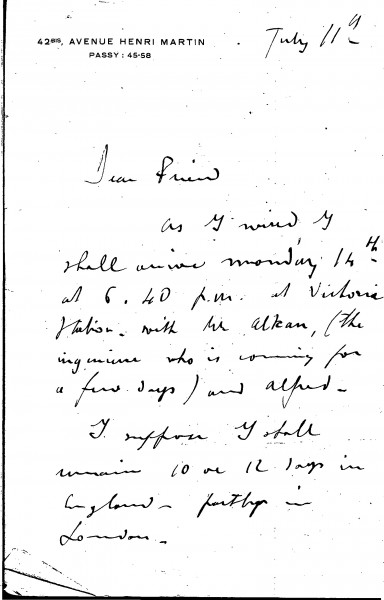 42BIS, AVENUE HENRI MARTIN
PASSY : 45-58
July 11th
Dear Friend
as I wired I
shall arrive monday 14th
at 6.40 p.m. at Victoria
Station - with Mr Alkan, (the
ingenieur who is coming for
a few days) and Alfred -
I suppose I shall
remain 10 or 12 days in
England - in
London -